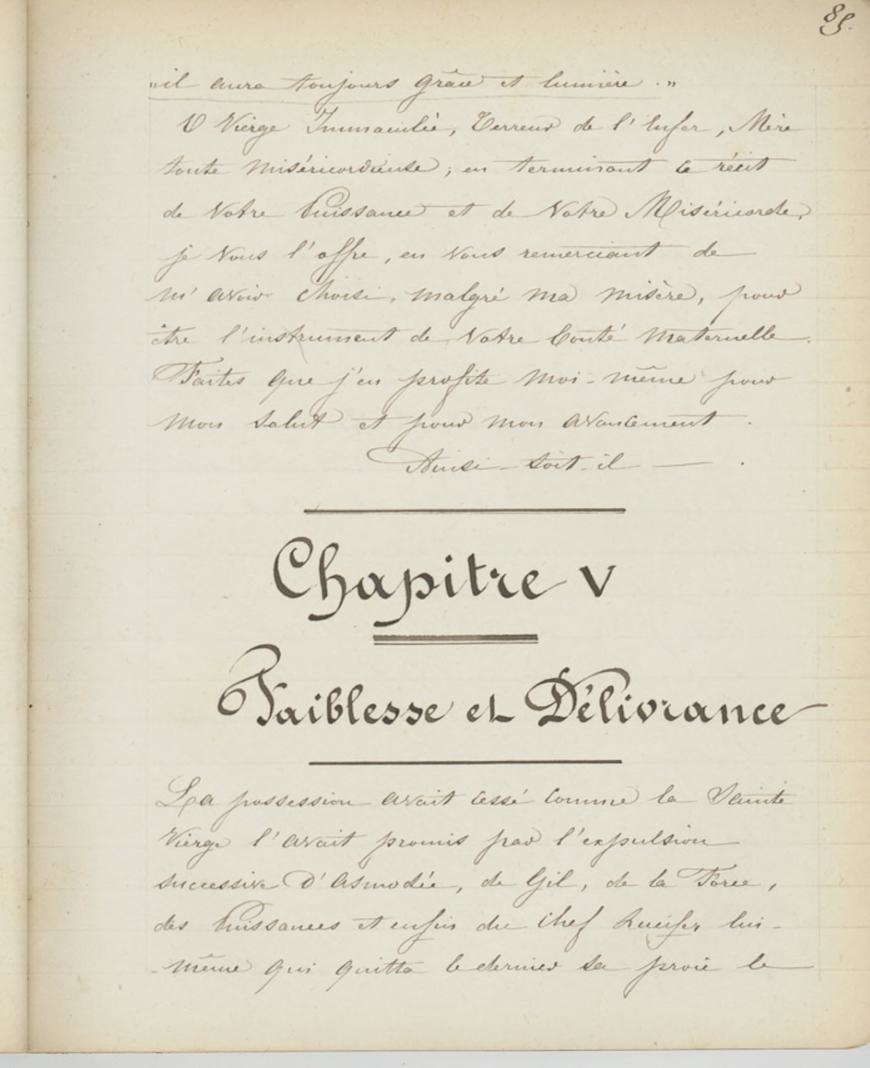 85.
"il aura toujours grâce et lumière."
O Vierge Immaculée, Terreur de l'Enfer, Mère
toute miséricordieuse, en terminant ce récit
de Votre Puissance et de Votre Miséricorde,
je Vous l'offre, en Vous remerciant de
m'avoir choisi, malgré ma misère, pour
être l'instrument de Votre bonté maternelle.
Faites que j'en profite moi-même pour
mon salut et pour mon avancement.
Ainsi-soit-il —.
Chapitre V
Faiblesse et Délivrance
La possession avait cessé comme la Sainte
Vierge l'avait promis par l'expulsion
successive d'Asmodée, de Gil, de la Force,
des Puissances et enfin du chef Lucifer lui-
-même qui quitta le dernier sa proie le